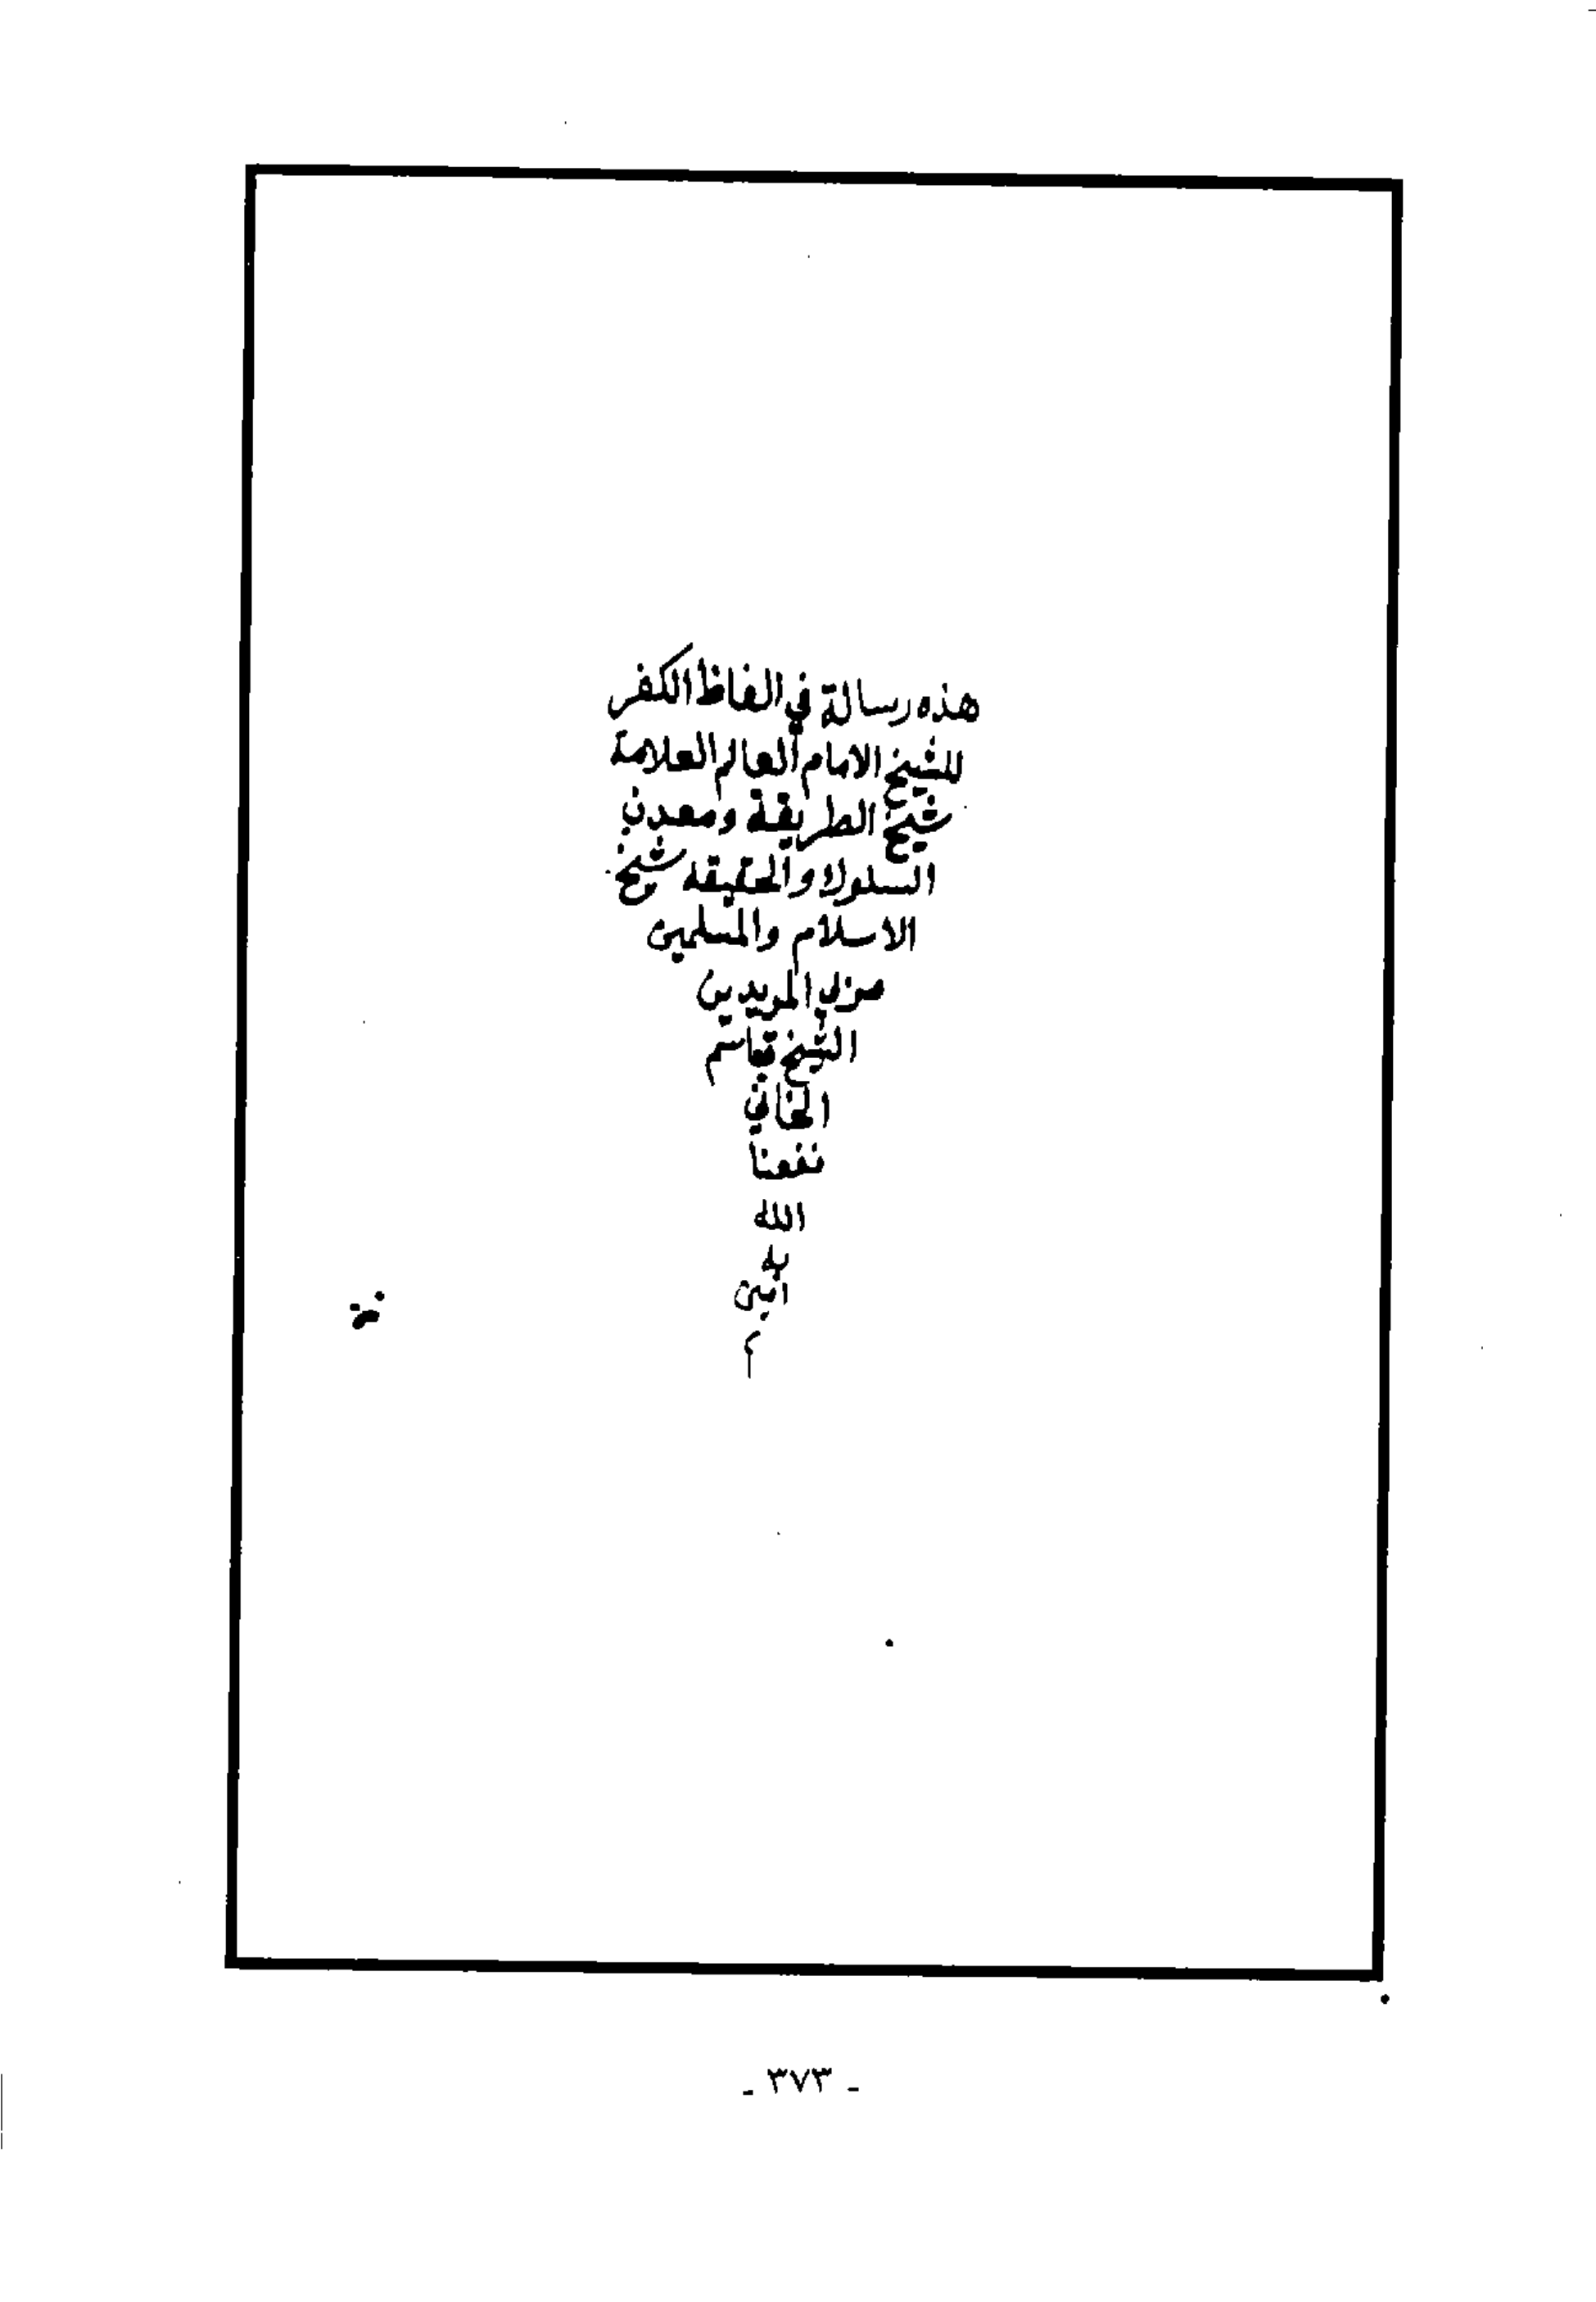 هذه رسالة في الفاظ الكفر
للشيخ الامام العالم العلامة
شيخ الطريقة ومعدن
السلوك والحقيقة شيخ
الاسلام والمسلمين
مربي المريدين
الشيخ قاسم
الخاني
نفعنا
الله
به
امين
م
- ٣٧٣ -